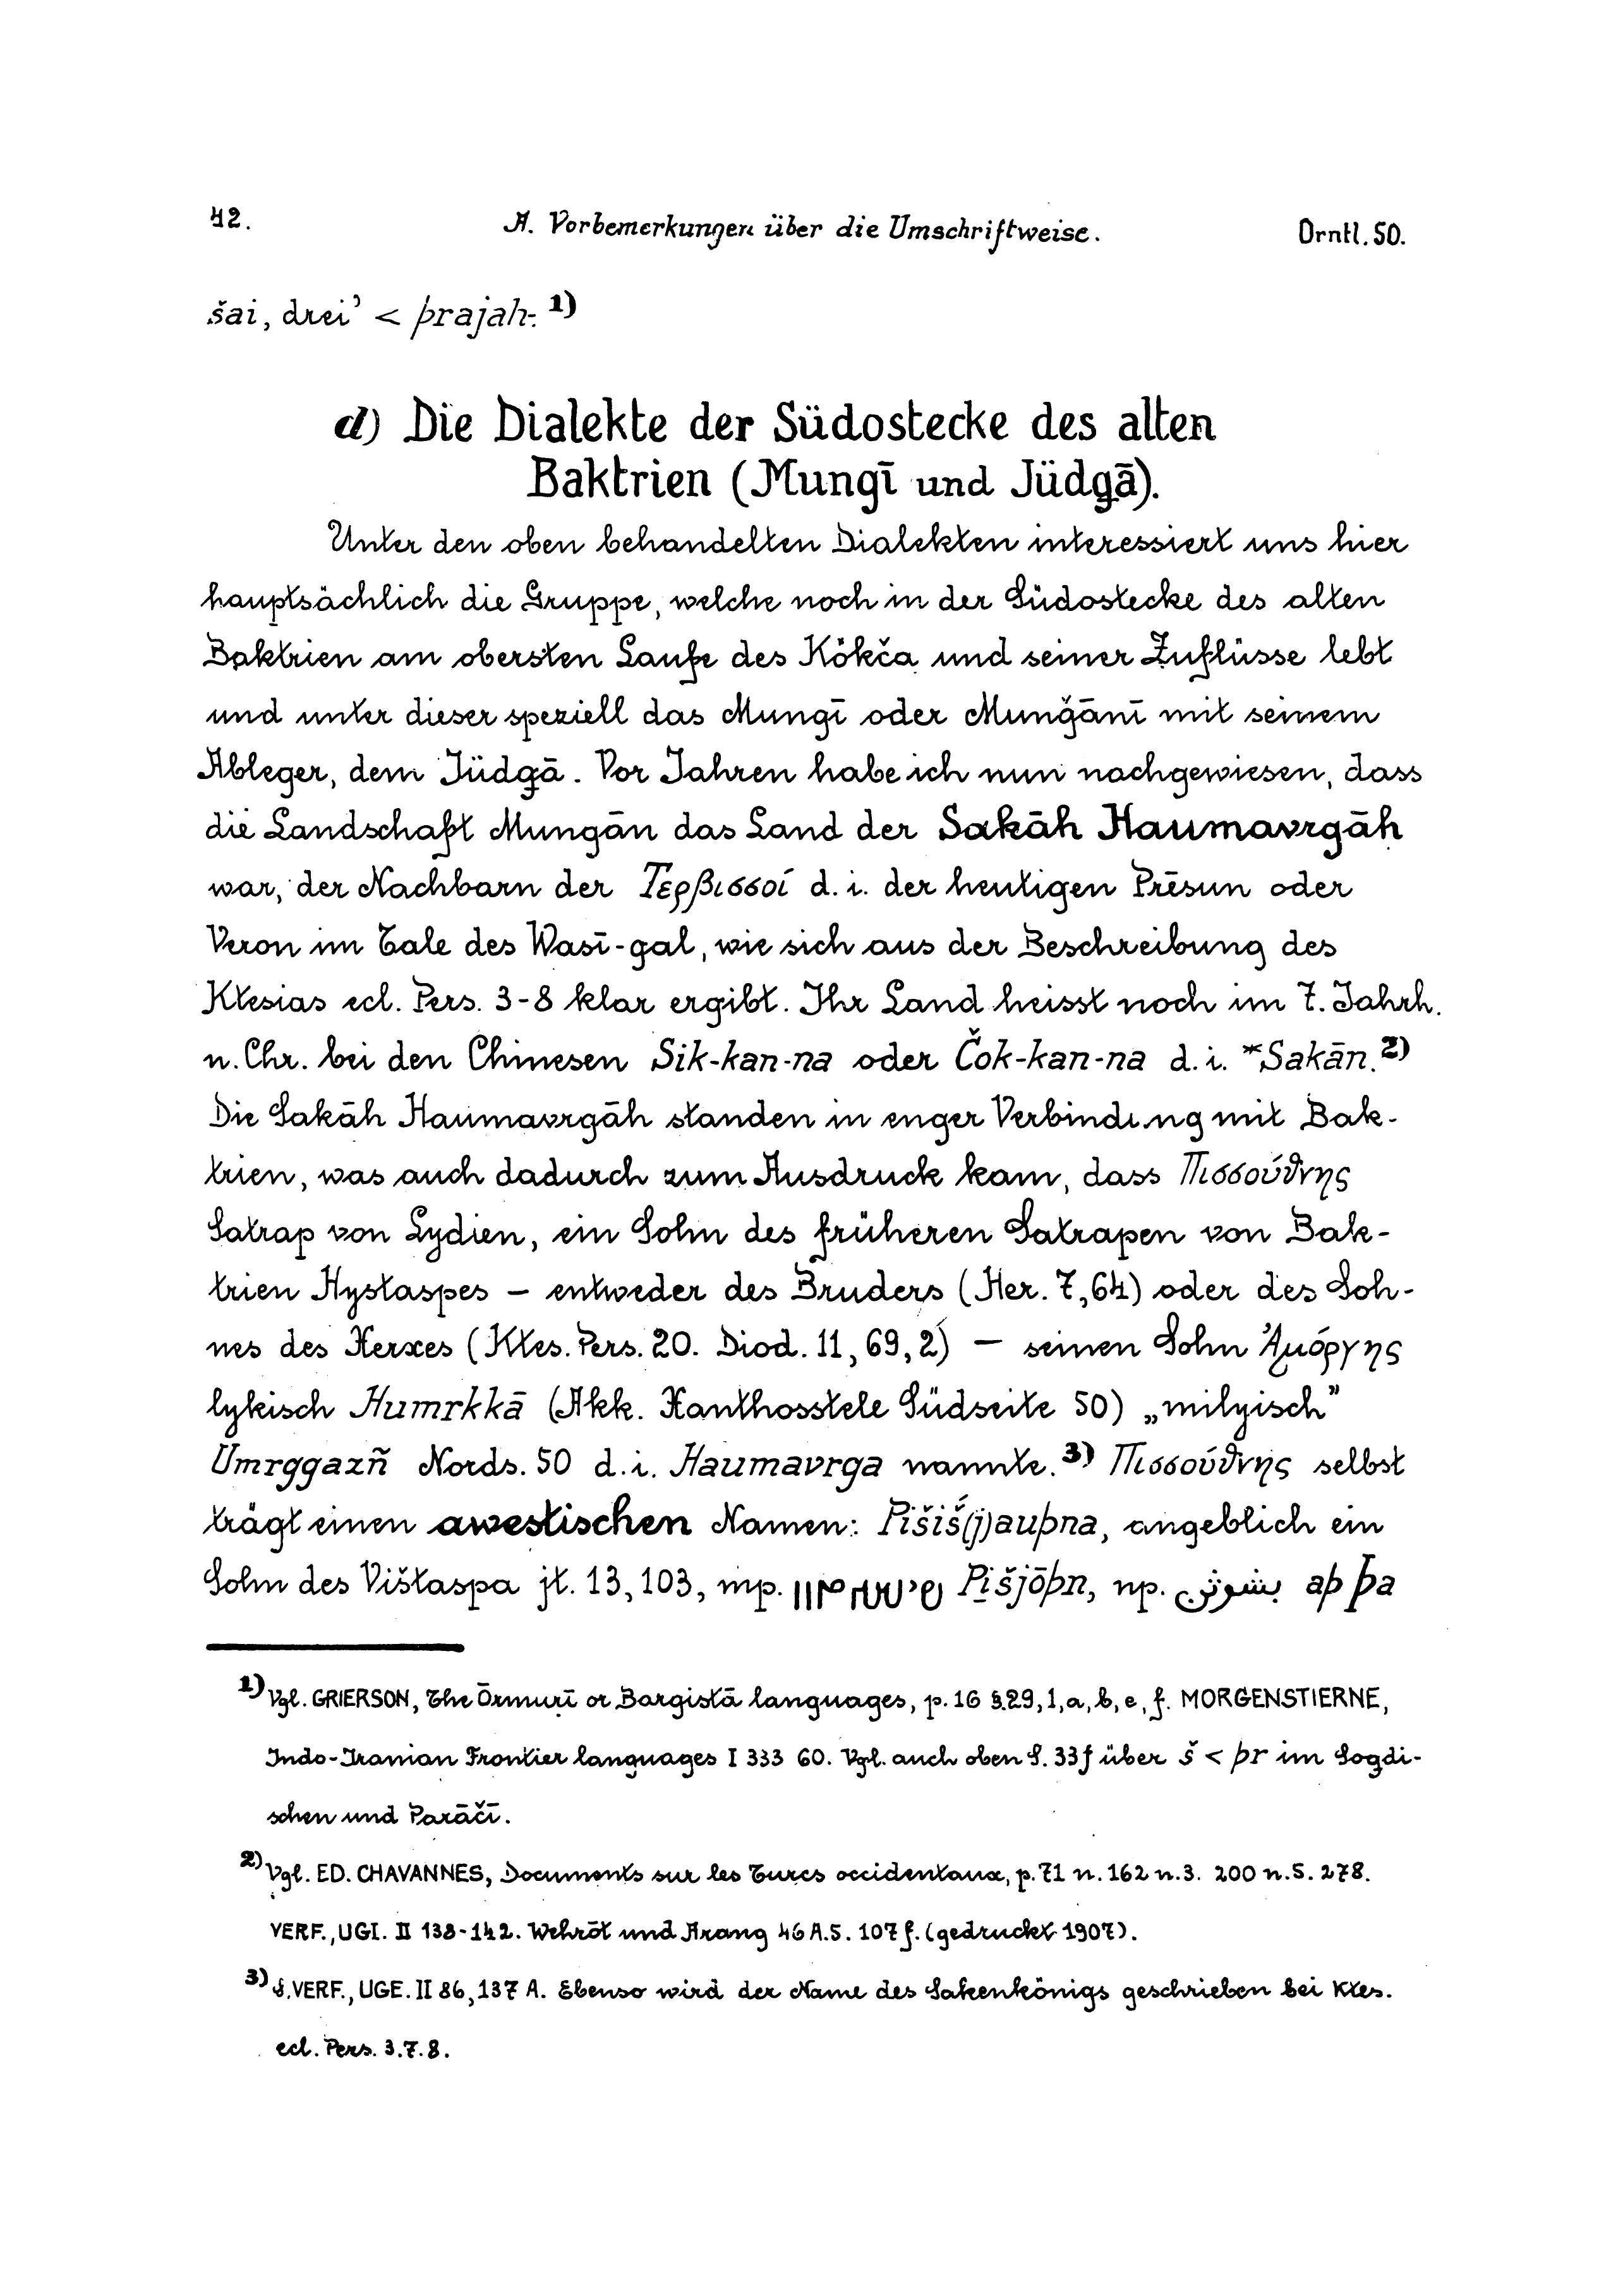 42. A. Vorbemerkungen über die Umschriftweise. Orntl. 50.
šai, drei’ < þrajah-. 1)
d) Die Dialekte der Südostecke des alten
Baktrien (Mungī und Jüdgā).
Unter den oben behandelten Dialekten interessiert uns hier
hauptsächlich die Gruppe, welche noch in der Südostecke des alten
Baktrien am obersten Laufe des Kökča und seiner Zuflüsse lebt
und unter dieser speziell das Mungī oder Munǧānī mit seinem
Ableger, dem Jüdgā. Vor Jahren habe ich nun nachgewiesen, dass
die Landschaft Mungān das Land der Sakāh Haumavrgāh
war, der Nachbarn der Τερβισσοί d. i. der heutigen Prēsun oder
Veron im Tale des Wasī-gal, wie sich aus der Beschreibung des
Ktesias ecl. Pers. 3-8 klar ergibt. Ihr Land heisst noch im 7. Jahrh.
n. Chr. bei den Chinesen Sik-kan-na oder Čok-kan-na d. i. *Sakān. 2)
Die Sakāh Haumavrgāh standen in enger Verbindung mit Bak-
trien, was auch dadurch zum Ausdruck kam, dass Πισσούθνης
Satrap von Lydien, ein Sohn des früheren Satrapen von Bak-
trien Hystaspes – entweder des Bruders (Her. 7,64) oder des Soh-
nes des Xerxes (Ktes. Pers. 20. Diod. 11, 69, 2) – seinen Sohn Ἀμόργης
lykisch Humrkkā (Akk. Xanthosstele Südseite 50) „milyisch”
Umrggazñ Nords. 50 d. i. Haumavrga nannte. 3) Πισσούθνης selbst
trägt einen awestischen Namen: Pišiš(j)auþna, angeblich ein
Sohn des Vištaspa jt. 13, 103, mp. Pišjōþn, np. بشوتن aþ þa
1) Vgl. GRIERSON, The Ōrmuṛī or Bargistā languages, p. 16 §.29, 1, a, b, e, f. MORGENSTIERNE,
Indo-Iranian Frontier languages I 333 60. Vgl. auch oben S. 33f über š < þr im Sogdi-
schen und Parāčī.
2) Vgl. ED. CHAVANNES, Documents sur les Turcs occidentaux, p. 71 n. 162 n. 3. 200 n. 5. 278.
VERF., UGI. II 138-142. Wehrōt und Arang 46 A. 5. 107 f. (gedruckt 1907).
3) S. VERF., UGE. II 86, 137 A. Ebenso wird der Name des Sakenkönigs geschrieben bei Ktes.
ecl. Pers. 3. 7. 8.